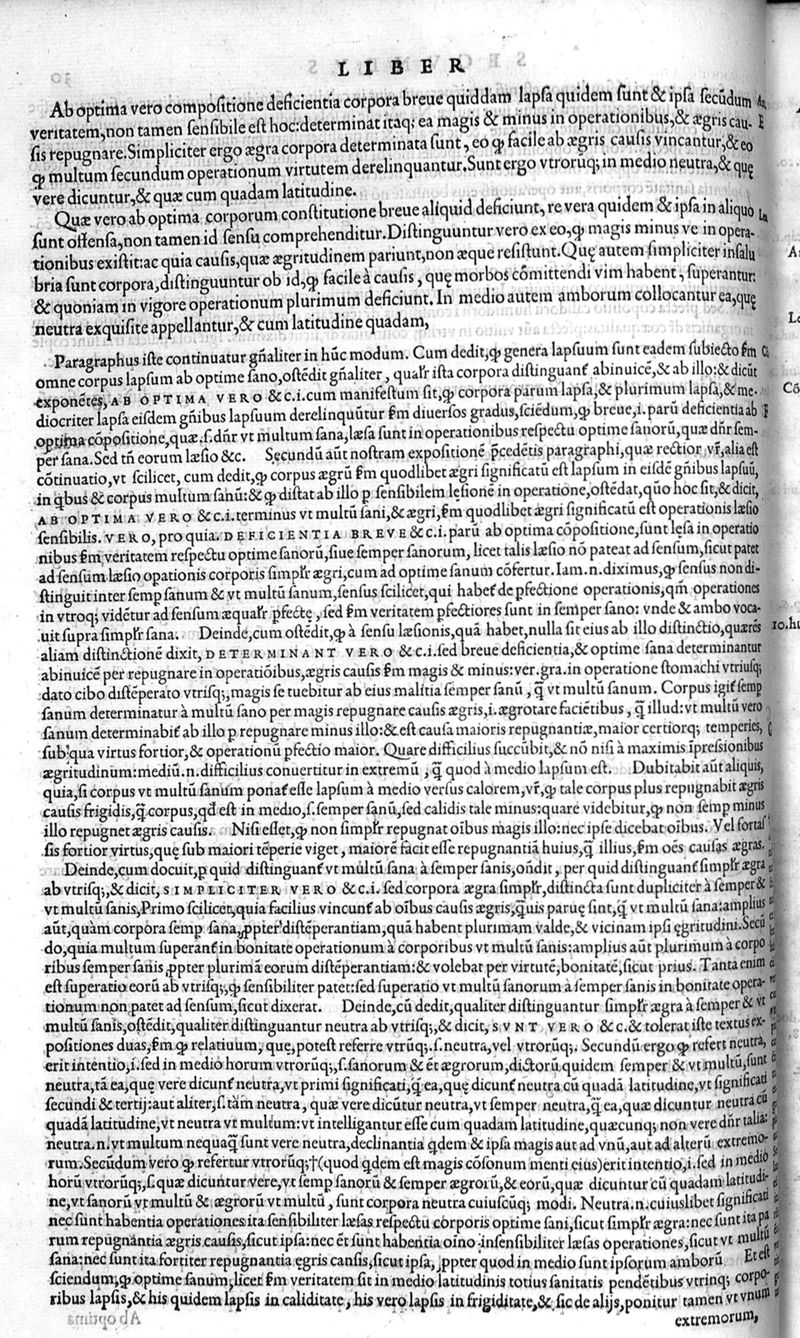 LIBER
Ab optima vero compositione deficientia corpora breue quiddam lapsa quidem sunt & ipsa secũdum
veritatem, non tamen sensibile est hoc: determinat itaq; ea magis & minus in operationibus, & ægris cau-
sis repugnare. Simpliciter ergo ægra corpora determinata sunt, eo ꝙ facile ab ægris causis vincantur, & eo
ꝙ multum secundum operationum virtutem derelinquantur. Sunt ergo vtrorũq; in medio neutra, & quę
vere dicuntur, & quæ cum quadam latitudine.
Quæ vero ab optima corporum constitutione breue aliquid deficiunt, re vera quidem & ipsa in aliquo
sunt offensa, non tamen id sensu comprehenditur. Distinguuntur vero ex eo, ꝙ magis minus ve in opera-
tionibus existit: ac quia causis, quæ ægritudinem pariunt, non æque resistunt. Quę autem simpliciter insalu
bria sunt corpora, distinguuntur ob id, ꝙ facile à causis, quę morbos cõmittendi vim habent, superantur:
& quoniam in vigore operationum plurimum deficiunt. In medio autem amborum collocantur ea, quę
neutra exquisite appellantur, & cum latitudine quadam,
Paragraphus iste continuatur gñaliter in hũc modum. Cum dedit, ꝙ genera lapsuum sunt eadem subiecto fm
omne corpus lapsum ab optime sano, ostẽdit gñaliter, qualr ista corpora distinguant abinuicẽ, & ab illo: & dicũt
exponẽtes, AB OPTIMA VERO & c. i. cum manifestum sit, ꝙ corpora parum lapsa, & plurimum lapsa, & me-
diocriter lapsa eisdem gñibus lapsuum derelinquũtur fm diuersos gradus, sciẽdum, ꝙ breue, i. parũ deficientia ab
optima cõpositione, quæ, s. dñr vt multum sana, læsa sunt in operationibus respectu optime sanorũ, quæ dñr sem-
per sana. Sed tñ eorum læsio &c. Secundũ aũt nostram expositionẽ præcedẽtis paragraphi, quæ rectior vr, alia est
cõtinuatio, vt scilicet, cum dedit, ꝙ corpus ægrũ fm quodlibet ægri significatũ est lapsum in eisdẽ gñibus lapsuũ,
in qbus & corpus multum sanũ: & ꝙ distat ab illo p sensibilem lęsionẽ in operatione, ostẽdat, quo hoc sit, & dicit,
AB OPTIMA VERO & c. i. terminus vt multũ sani, & ægri, fm quodlibet ægri significatũ est operationis læsio
sensibilis. VERO, pro quia. DEFICIENTIA BREVE & c. i. parũ ab optima cõpositione, sunt lęsa in operatio
nibus fm veritatem respectu optime sanorũ, siue semper sanorum, licet talis læsio nõ pateat ad sensum, sicut patet
ad sensum læsio opationis corporis simplr ægri, cum ad optime sanum cõfertur. Iam. n. diximus, ꝙ sensus non di-
stinguit inter semp sanum & vt multũ sanum, sensus scilicet, qui habet de pfectione operationis, qm operationes
in vtroq; vidẽtur ad sensum æqualr pfectę, sed fm veritatem pfectiores sunt in semper sano: vnde & ambo voca-
uit supra simplr sana. Deinde, cum ostẽdit, ꝙ à sensu læsionis, quã habet, nulla sit eius ab illo distinctio, quærẽs
aliam distinctionẽ dixit, DETERMINANT VERO & c. i. sed breue deficientia, & optime sana determinantur
abinuicẽ per repugnare in operatiõibus, ægris causis fm magis & minus: ver. gra. in operatione stomachi vtriusq;
dato cibo distẽperato vtrisq;, magis se tuebitur ab eius malitia semper sanũ, q̃ vt multũ sanum. Corpus igit semp
sanum determinatur à multũ sano per magis repugnare causis ægris, i. ægrotare faciẽtibus, q̃ illud: vt multũ vero
sanum determinabit ab illo p repugnare minus illo: & est causa maioris repugnantiæ, maior certiorq; temperies,
sub qua virtus fortior, & operationũ pfectio maior. Quare difficilius succũbit, & nõ nisi à maximis ĩpressionibus
ægritudinum: mediũ. n. difficilius conuertitur in extremũ, q̃ quod à medio lapsum est. Dubitabit aũt aliquis,
quia, si corpus vt multũ sanum ponat esse lapsum à medio versus calorem, vr, ꝙ tale corpus plus repugnabit ægris
causis frigidis, q̃ corpus, qd est in medio, s. semper sanũ, sed calidis tale minus: quare videbitur, ꝙ non semp minus
illo repugnet ægris causis. Nisi esset, ꝙ non simplr repugnat oibus magis illo: nec ipse dicebat oibus. Vel fortas
sis fortior virtus, quę sub maiori tẽperie viget, maiorẽ facit esse repugnantiã huius, q̃ illius, fm oẽs causas ægras.
Deinde, cum docuit, p quid distinguant vt multũ sana à semper sanis, oñdit, per quid distinguant simplr ægra
ab vtrisq;, & dicit, SIMPLICITER VERO & c. i. sed corpora ægra simplr, distincta sunt dupliciter à semper &
vt multũ sanis, Primo scilicet, quia facilius vincunt ab oibus causis ægris, q̃uis paruę sint, q̃ vt multũ sana: amplius
aũt, quàm corpora semp sana, ppter distẽperantiam, quã habent plurimam valde, & vicinam ipsi ęgritudini. Secũ
do, quia multum superant in bonitate operationum à corporibus vt multũ sanis: amplius aũt plurimum à corpo
ribus semper sanis, ppter plurimã eorum distẽperantiam: & volebat per virtutẽ, bonitatẽ, sicut prius. Tanta enim
est superatio eorũ ab vtrisq;, ꝙ sensibiliter patet: sed superatio vt multũ sanorum à semper sanis in bonitate opera-
tionum non patet ad sensum, sicut dixerat. Deinde, cũ dedit, qualiter distinguantur simplr ægra à semper & vt
multũ sanis, ostẽdit, qualiter distinguantur neutra ab vtrisq;, & dicit, SVNT VERO & c. & tolerat iste textus ex-
positiones duas, fm ꝙ relatiuum, que, potest referre vtrũq;. s. neutra, vel vtrorũq;. Secundũ ergo ꝙ refert neutra,
erit intentio, i. sed in medio horum vtrorũq;, s. sanorum & ẽt ægrorum, dictorũ quidem semper & vt multũ, sunt
neutra, tã ea, quę vere dicunt neutra, vt primi significati, q̃ ea, quę dicunt neutra cũ quadã latitudine, vt significati
secundi & tertij: aut aliter, s. tàm neutra, quæ vere dicũtur neutra, vt semper neutra, q̃ ea, quæ dicuntur neutra cũ
quadã latitudine, vt neutra vt multum: vt intelligantur esse cum quadam latitudine, quæcunq; non vere dñr talia:
neutra. n. vt multum nequaq̃ sunt vere neutra, declinantia qdem & ipsa magis aut ad vnũ, aut ad alterũ extremo-
rum. Secũdum vero ꝙ refertur vtrorũq; †(quod qdem est magis cõsonum menti eius) erit intentio, i. sed in medio
horũ vtrorũq;, s. quæ dicuntur vere, vt semp sanorũ & semper ægrorũ, & eorũ, quæ dicuntur cũ quadam latitudi-
ne, vt sanorũ vt multũ & ægrorũ vt multũ, sunt corpora neutra cuiuscũq; modi. Neutra. n. cuiuslibet significati
nec sunt habentia operationes ita sensibiliter læsas respectu corporis optime sani, sicut simplr ægra: nec sunt ita pa
rum repugnantia ægris causis, sicut ipsa: nec ẽt sunt habentia oino insensibiliter læsas operationes, sicut vt multũ
sana: nec sunt ita fortiter repugnantia ęgris cansis, sicut ipsa, ppter quod in medio sunt ipsorum amborũ. Et est
sciendum, ꝙ optime sanum, licet fm veritatem sit in medio latitudinis totius sanitatis pendẽtibus vtrinq; corpo-
ribus lapsis, & his quidem lapsis in caliditate, his vero lapsis in frigiditate, & sic de alijs, ponitur tamen vt vnum
extremorum,